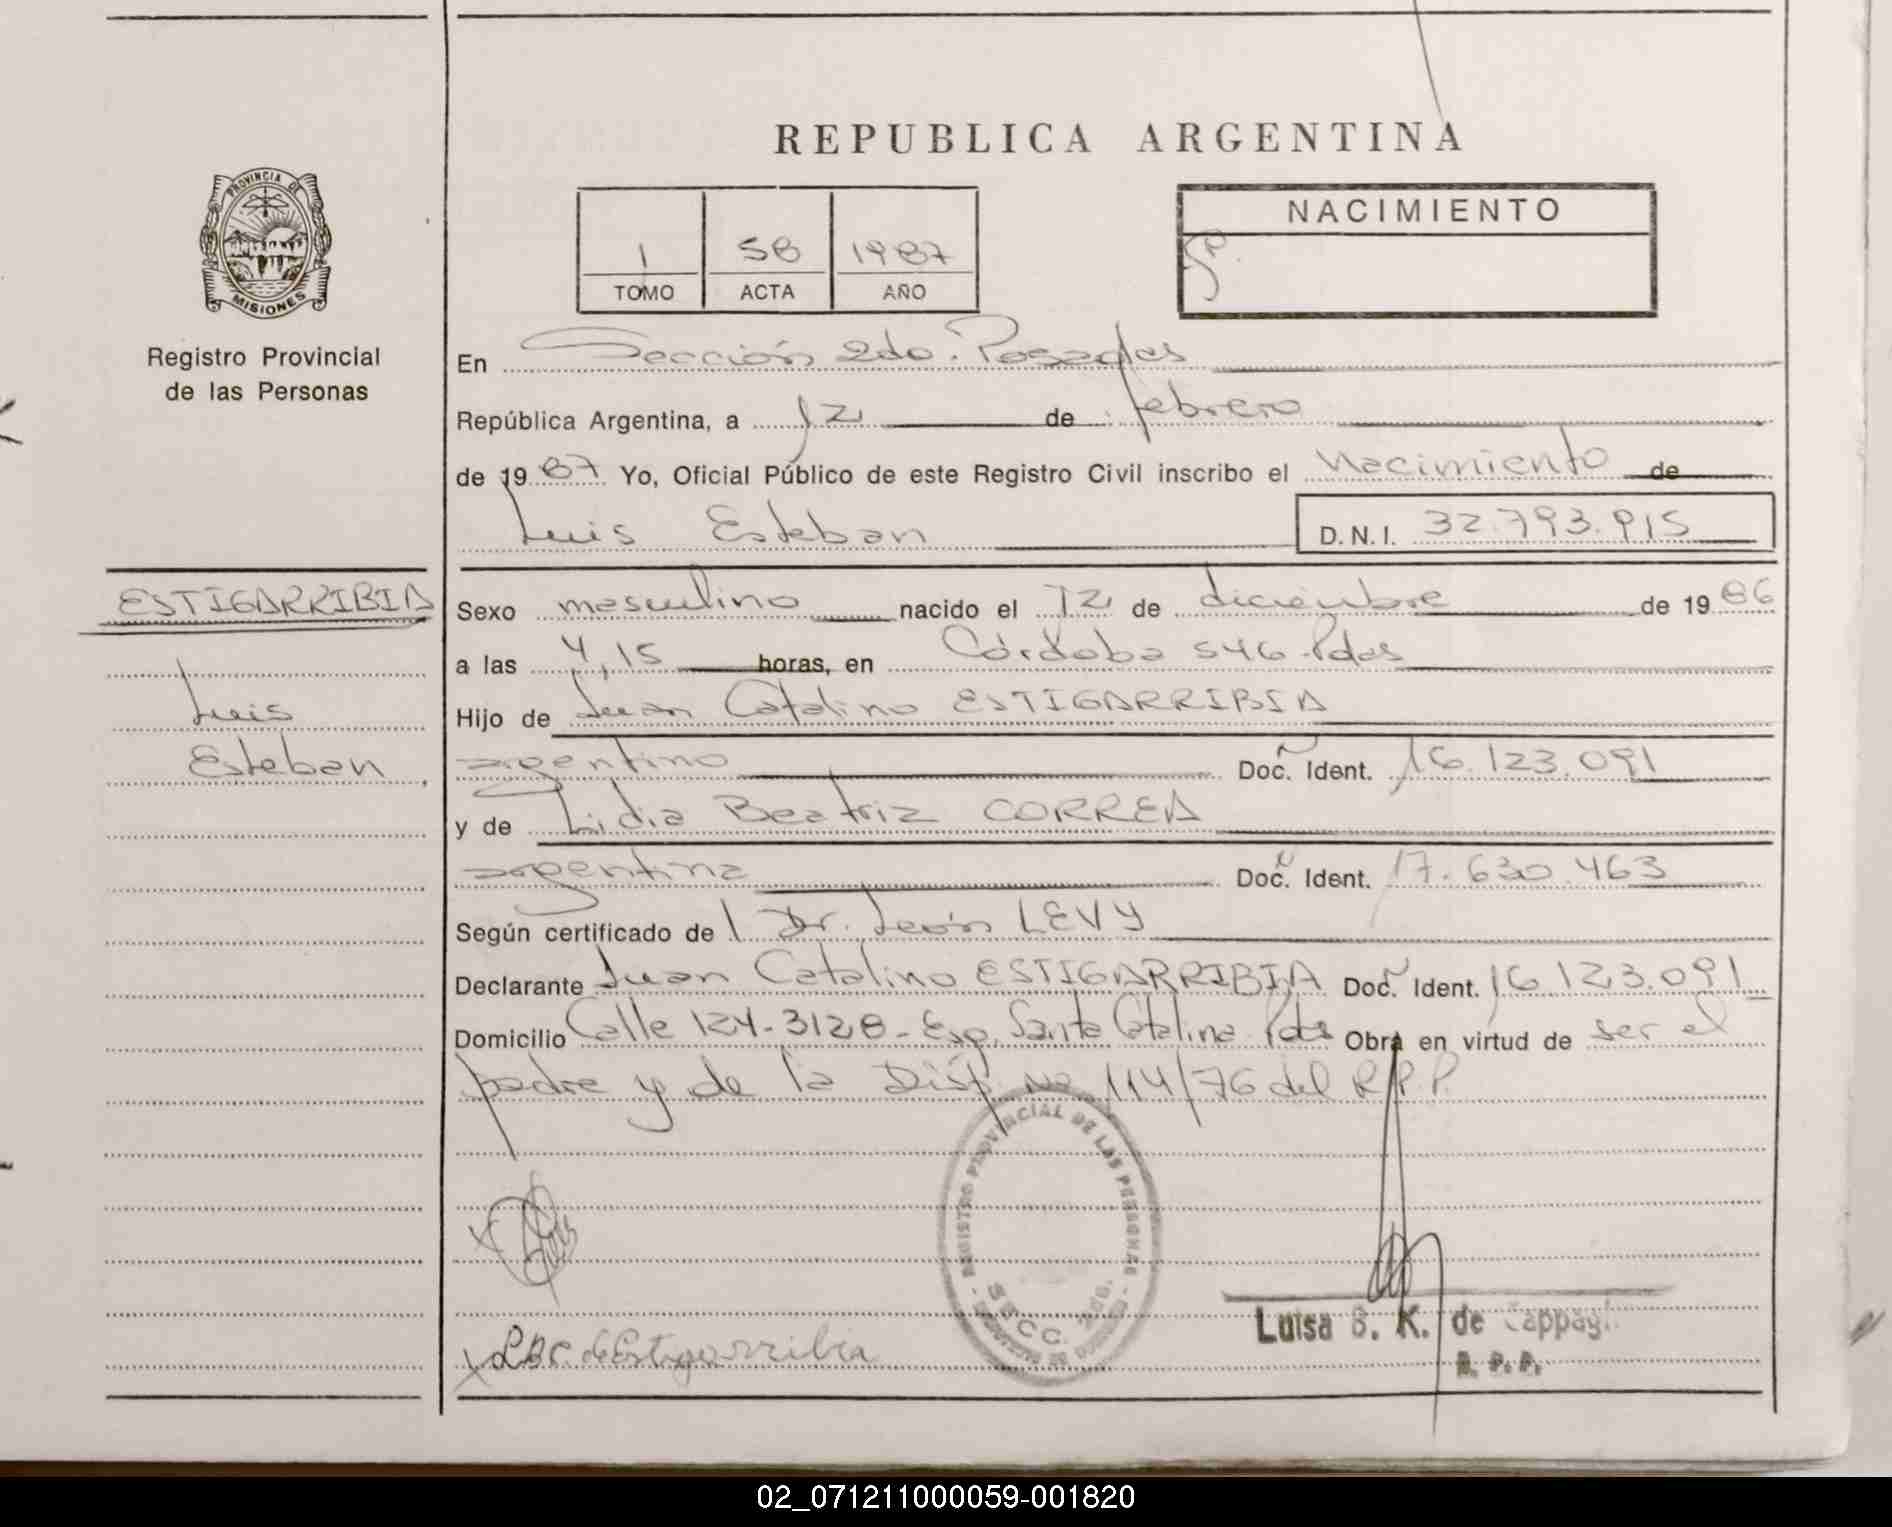 REPUBLICA ARGENTINA
PROVINCIA DE
MISIONES
Registro Provincial
de las Personas
1 58 1987
TOMO ACTA AÑO
NACIMIENTO
En Sección 2do. Posadas
República Argentina, a 12 de febrero
de 1987 Yo, Oficial Público de este Registro Civil inscribo el Nacimiento de
Luis Esteban D.N.I. 32.793.915
ESTIGARRIBIA
Luis
Esteban
Sexo masculino nacido el 12 de diciembre de 1986
a las 4,15 horas, en Córdoba 546 Pdas
Hijo de Juan Catalino ESTIGARRIBIA
argentino Doc. Ident. 16.123.091
y de Lidia Beatriz CORREA
argentina Doc. Ident. 17.630.463
Según certificado de Dr. León LEVY
Declarante Juan Catalino ESTIGARRIBIA Doc. Ident. 16.123.091
Domicilio Calle 124-3128-Esq. Santa Catalina Pdas Obra en virtud de ser el
padre y de la Disp. No 114/76 del R.P.P.
REGISTRO PROVINCIAL DE LAS PERSONAS
SECC. 2da.
L.B.C. de Estigarribia
Luisa B. K. de
R. P. P.
02_071211000059-001820